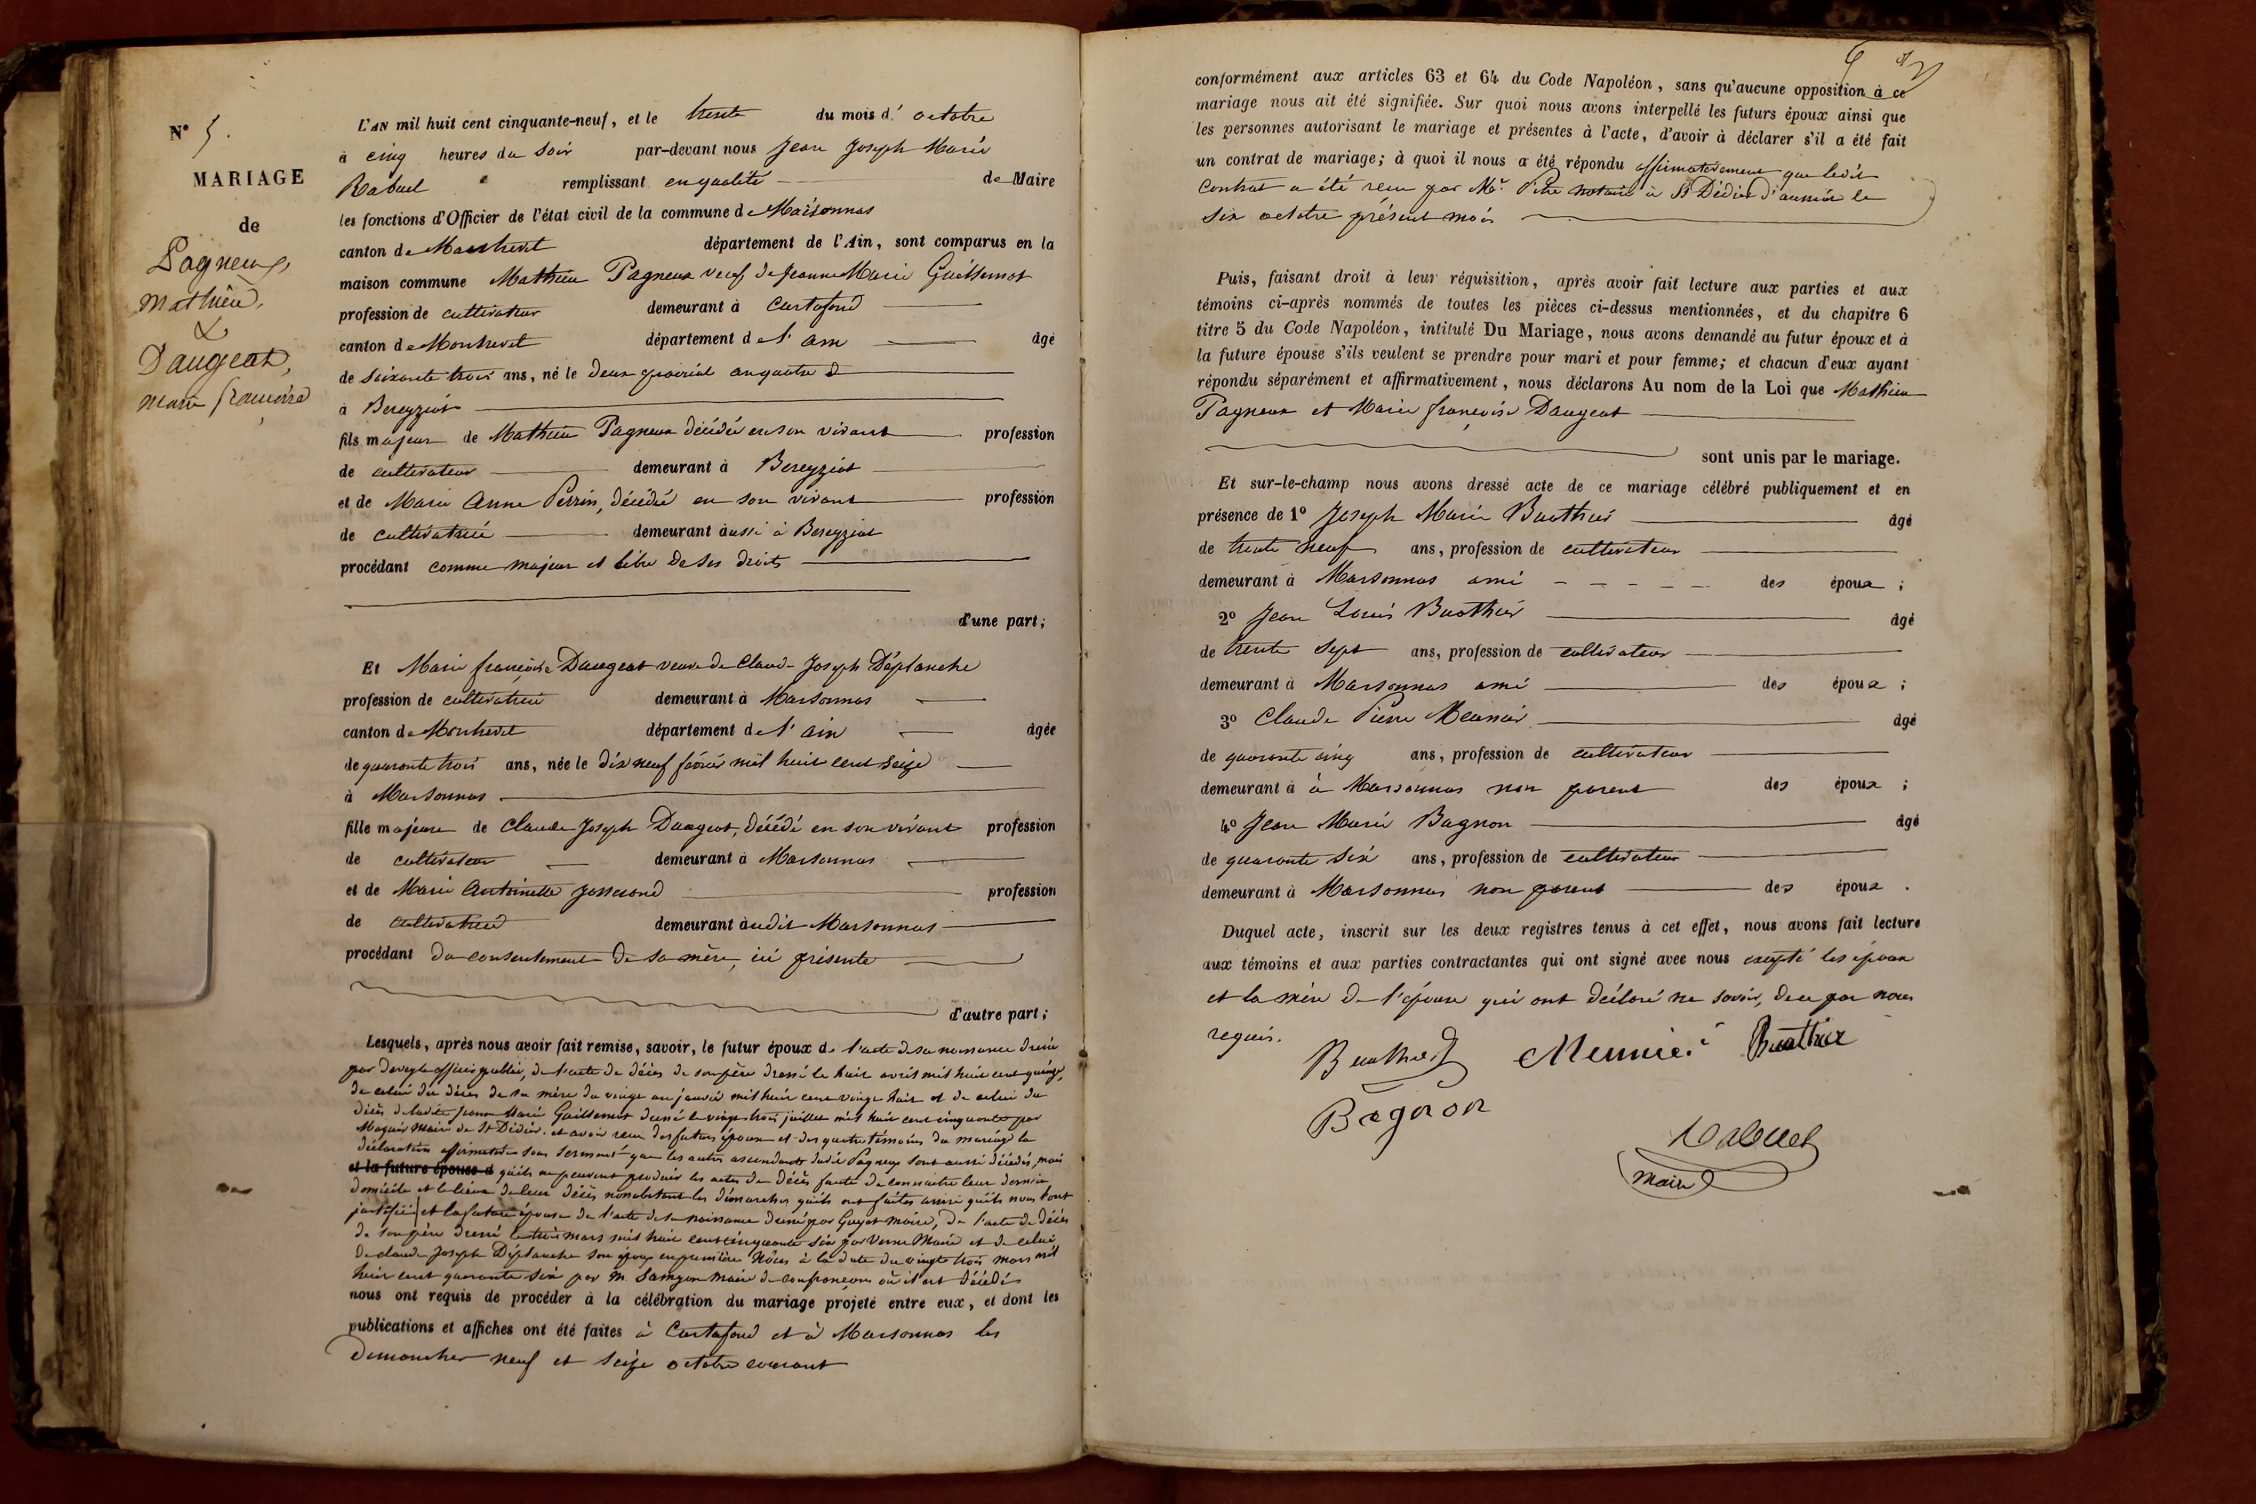 N° 5.
MARIAGE
de
Pagneux,
Mathieu,
&
Daugeat,
Marie françoise
L'AN mil huit cent cinquante-neuf, et le trente du mois d' octobre
à cinq heures du soir par-devant nous Jean Joseph Marie
Rabuel remplissant en qualité de Maire
les fonctions d'Officier de l'état civil de la commune de Marsonnas
canton de Montrevel département de l'Ain, sont comparus en la
maison commune Mathieu Pagneux veuf de Jeanne Marie Guillemot
profession de cultivateur demeurant à Curtafond
canton de Montrevel département de l' ain âgé
de soixante trois ans, né le deux prairial an quatre
à Béreyziat
fils majeur de Mathieu Pagneux décédé en son vivant profession
de cultivateur demeurant à Béreyziat
et de Marie Anne Perrin, décédée en son vivant profession
de cultivatrice demeurant aussi à Béreyziat
procédant comme majeur et libre de ses droits
d'une part;
Et Marie françoise Daugeat veuve de Claude Joseph Déplanche
profession de cultivatrice demeurant à Marsonnas
canton de Montrevel département de l' ain âgée
de quarante trois ans, née le dix neuf février mil huit cent seize
à Marsonnas
fille majeure de Claude Joseph Daugeat, décédé en son vivant profession
de cultivateur demeurant à Marsonnas
et de Marie Antoinette Josserand profession
de cultivatrice demeurant audit Marsonnas
procédant du consentement de sa mère, ici présente
d'autre part;
Lesquels, après nous avoir fait remise, savoir, le futur époux de l'acte de sa naissance
par officier public, de l'acte de décès de son père dressé le huit avril mil huit cent quinze,
de celui du décès de sa mère du vingt un janvier mil huit cent vingt huit et de celui du
décès de ladite Jeanne Marie Guillemot dressé le vingt trois juillet mil huit cent cinquante par
maire de St Didier. et avoir reçu des futurs époux et des quatre témoins du mariage la
déclaration affirmative sous serment que les autres ascendants dudit Pagneux sont aussi décédés, mais
et la future épouse d qu'ils ne peuvent produire les actes de décès faute de connaitre leur dernier
domicile et le lieu de leur décès nonobstant les démarches qu'ils ont faites ainsi qu'ils nous l'ont
justifié et la future épouse de l'acte de sa naissance par Guyot maire, de l'acte de décès
de son père dressé le trois mars mil huit cent cinquante six par maire et de celui
de Claude Joseph Déplanche son époux en première Nôces à la date du vingt trois mars mil
huit cent quarante six par M. maire de Confrançon où il est décédé
nous ont requis de procéder à la célébration du mariage projeté entre eux, et dont les
publications et affiches ont été faites à Curtafond et à Marsonnas les
dimanches neuf et seize octobre courant
conformément aux articles 63 et 64 du Code Napoléon, sans qu'aucune opposition à ce
mariage nous ait été signifiée. Sur quoi nous avons interpellé les futurs époux ainsi que
les personnes autorisant le mariage et présentes à l'acte, d'avoir à déclarer s'il a été fait
un contrat de mariage; à quoi il nous a été répondu affirmativement que ledit
contrat a été reçu par Me. notaire à St Didier d'aussiat le
six octobre présent mois
Puis, faisant droit à leur réquisition, après avoir fait lecture aux parties et aux
témoins ci-après nommés de toutes les pièces ci-dessus mentionnées, et du chapitre 6
titre 5 du Code Napoléon, intitulé Du Mariage, nous avons demandé au futur époux et à
la future épouse s'ils veulent se prendre pour mari et pour femme; et chacun d'eux ayant
répondu séparément et affirmativement, nous déclarons Au nom de la Loi que Mathieu
Pagneux et Marie françoise Daugeat
sont unis par le mariage.
Et sur-le-champ nous avons dressé acte de ce mariage célébré publiquement et en
présence de 1° Joseph Marie Buathier âgé
de trente neuf ans, profession de cultivateur
demeurant à Marsonnas ami des époux ;
2° Jean Louis Buathier âgé
de trente sept ans, profession de cultivateur
demeurant à Marsonnas ami des époux ;
3° Claude Pierre Meunier âgé
de quarante cinq ans, profession de cultivateur
demeurant à à Marsonnas non parent des époux ;
4° Jean Marie Bagnon âgé
de quarante six ans, profession de cultivateur
demeurant à Marsonnas non parent des époux .
Duquel acte, inscrit sur les deux registres tenus à cet effet, nous avons fait lecture
aux témoins et aux parties contractantes qui ont signé avec nous excepté les époux
et la mère de l'épouse qui ont déclaré ne savoir, de ce par nous
requis.
Buathier Meunier Buathier
Bagnon
Rabuel
maire